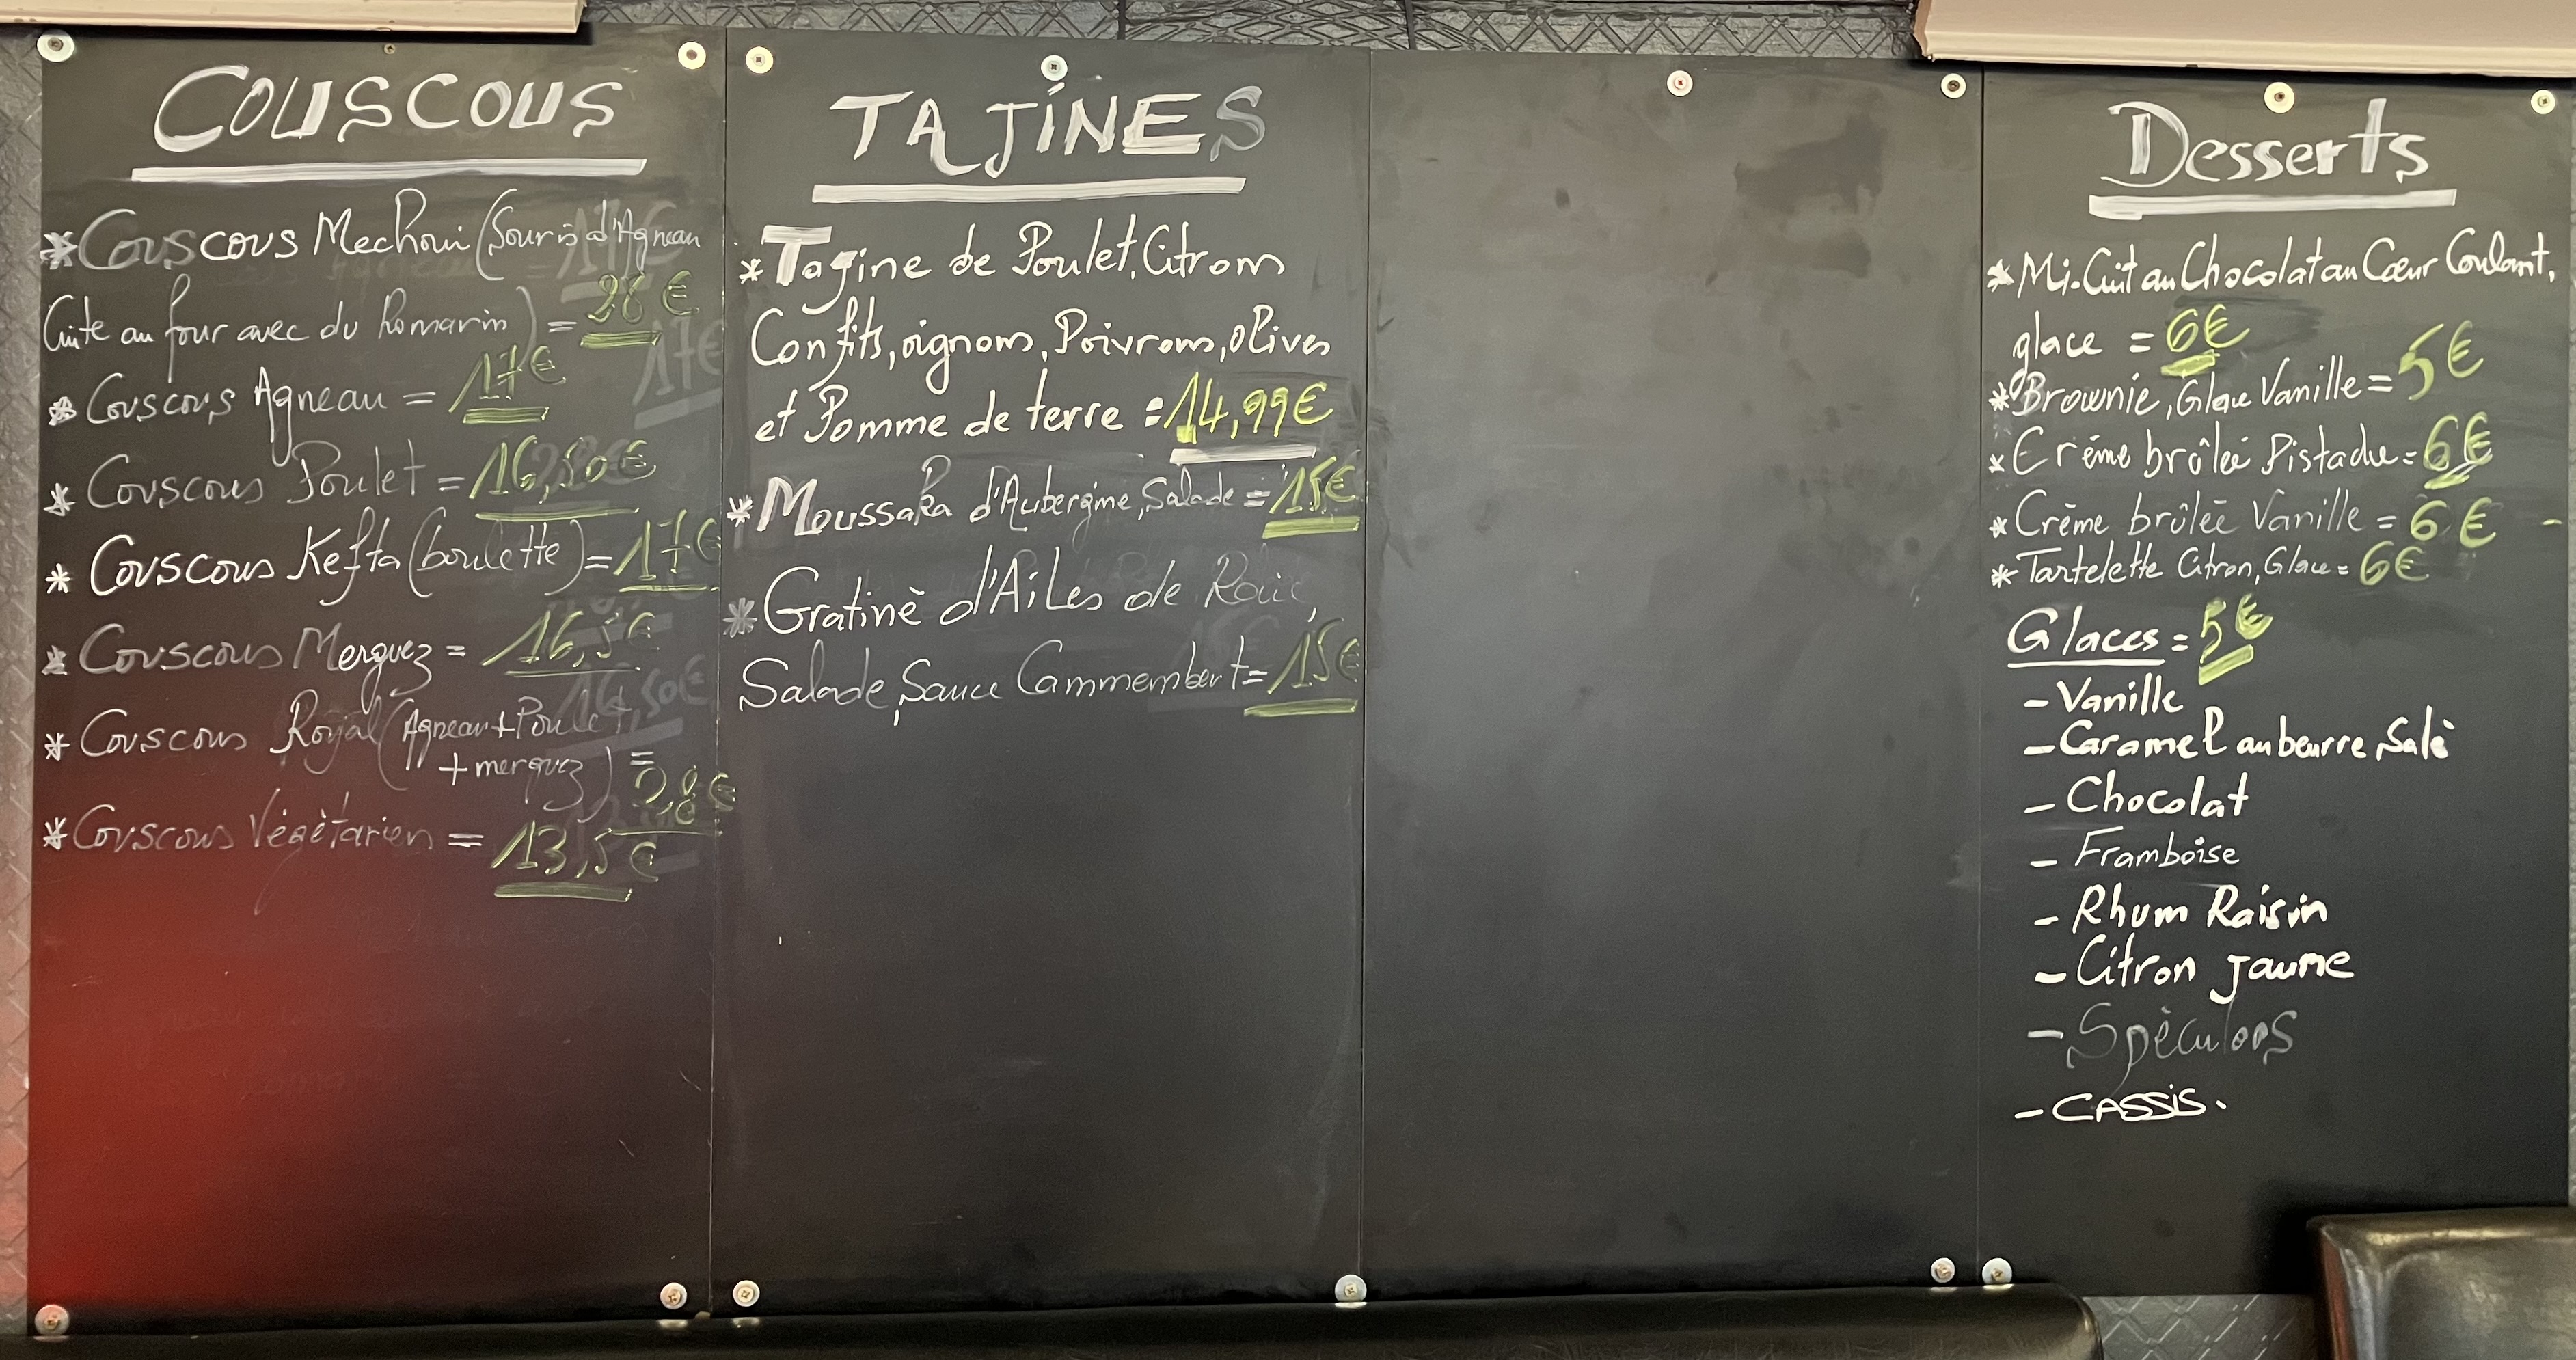 COUSCOUS
*Couscous Mechoui (Souris d'Agneau
Cuite au four avec du Romarin) = 28€
* Couscous Agneau = 17€
* Couscous Poulet = 16,50€
* Couscous Kefta (boulette) = 17€
* Couscous Merguez = 16,5€
* Couscous Royal (Agneau + Poulet
+ merguez) =
28€
*Couscous Végétarien = 13,5€
TAJINES
*Tagine de Poulet, Citrons
Confits, oignons, Poivrons, olives
et Pomme de terre = 14,99€
*Moussaka d'Aubergine, Salade = 15€
*Gratiné d'Ailes de Raie,
Salade, Sauce Cammembert = 15€
Desserts
*Mi-Cuit au Chocolat au Cœur Coulant,
glace = 6€
*Brownie, Glace Vanille = 5€
*Crème brûlée Pistache = 6€
*Crème brûlée Vanille = 6€
*Tartelette Citron, Glace = 6€
Glaces = 5€
- Vanille
- Caramel au beurre, Salé
- Chocolat
- Framboise
- Rhum Raisin
- Citron jaune
- Spéculoos
- CASSIS.